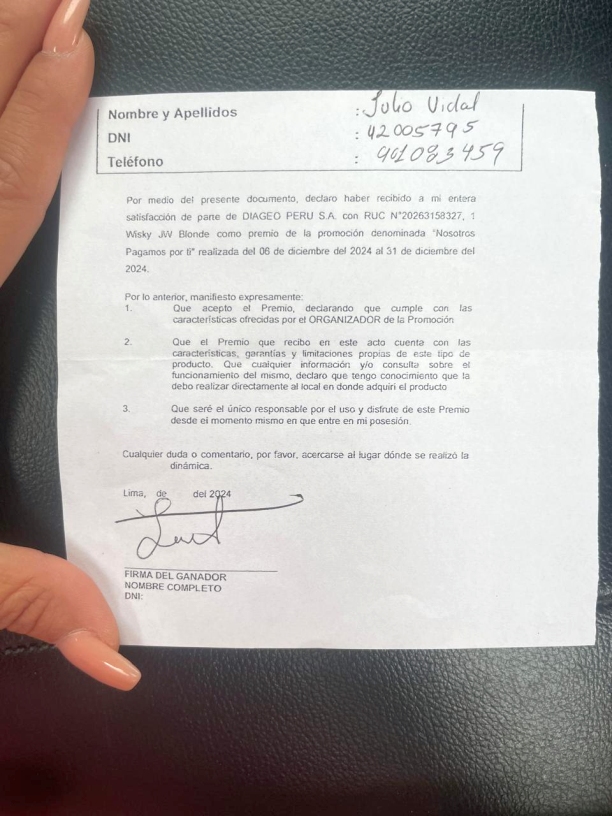 Nombre y Apellidos : Julio Vidal
DNI : 42005795
Teléfono : 901083459
Por medio del presente documento, declaro haber recibido a mi entera
satisfacción de parte de DIAGEO PERU S.A. con RUC N°20263158327, 1
Wisky JW Blonde como premio de la promoción denominada "Nosotros
Pagamos por ti" realizada del 06 de diciembre del 2024 al 31 de diciembre del
2024.
Por lo anterior, manifiesto expresamente:
1. Que acepto el Premio, declarando que cumple con las
características ofrecidas por el ORGANIZADOR de la Promoción
2. Que el Premio que recibo en este acto cuenta con las
características, garantías y limitaciones propias de este tipo de
producto. Que cualquier información y/o consulta sobre el
funcionamiento del mismo, declaro que tengo conocimiento que la
debo realizar directamente al local en donde adquirí el producto
3. Que seré el único responsable por el uso y disfrute de este Premio
desde el momento mismo en que entre en mi posesión.
Cualquier duda o comentario, por favor, acercarse al lugar dónde se realizó la
dinámica.
Lima, de del 2024
FIRMA DEL GANADOR
NOMBRE COMPLETO
DNI: